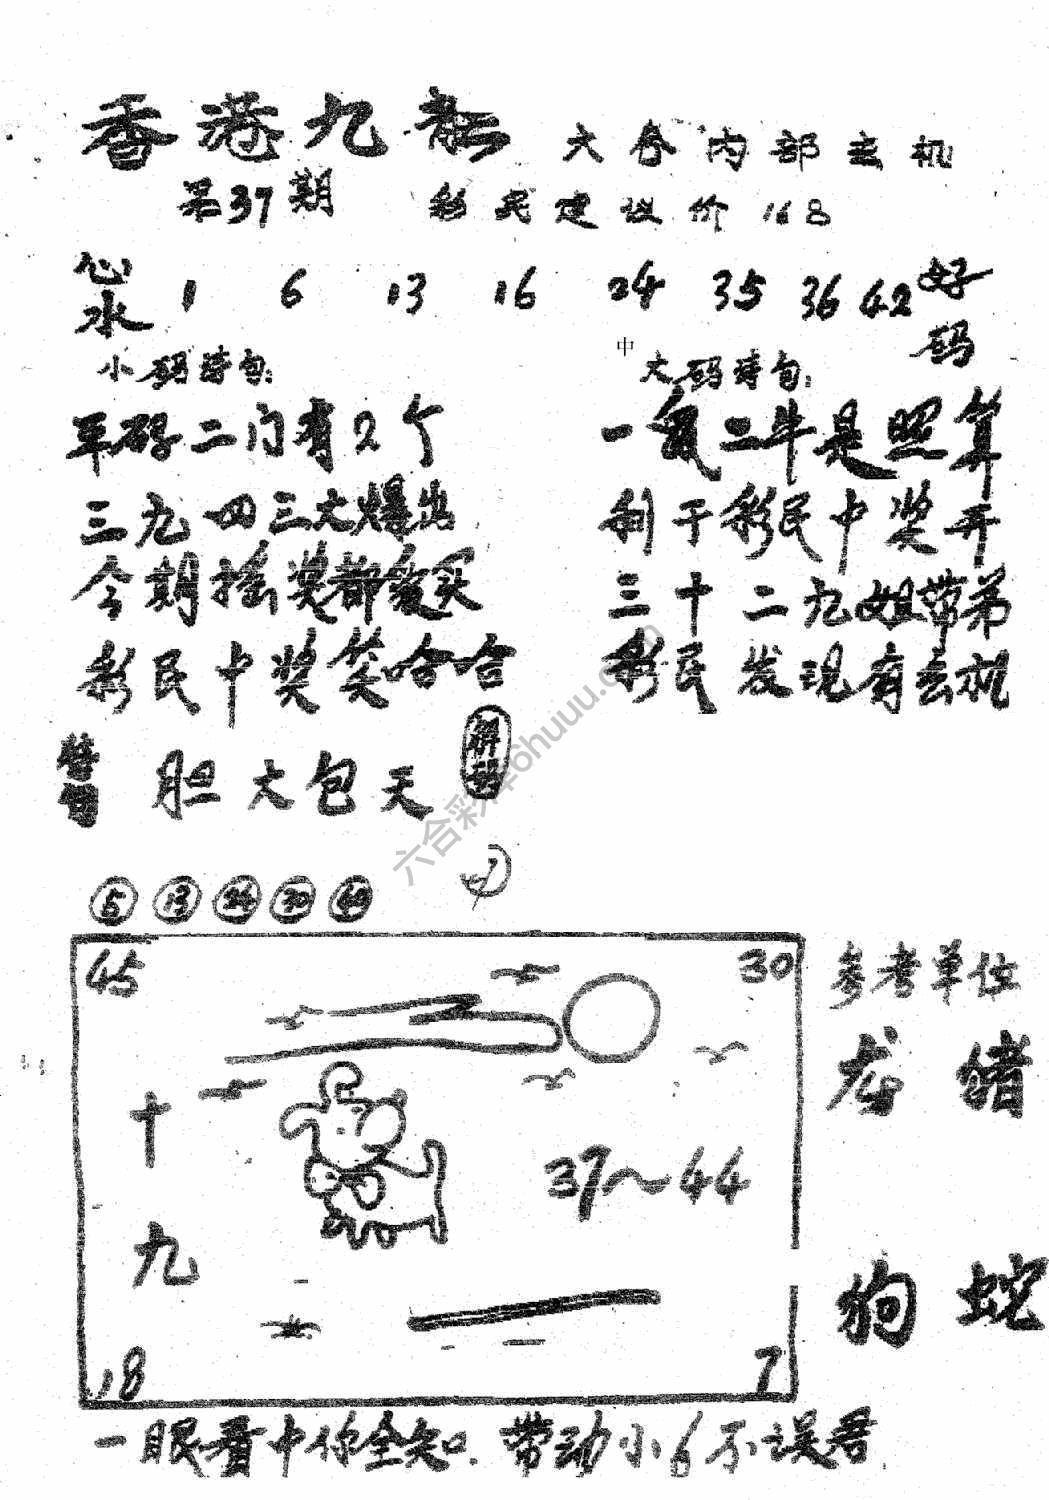 香港九龍 大春内部玄机
第37期 彩民建议价168
心水 1 6 13 16 24 35 36 42 好码
中
小码诗句: 大码诗句:
平码二门有2个 一氣二牛是照算
三九四三大爆出 利于彩民中奖开
今期摇奖都爱买 三十二九姐带弟
彩民中奖笑哈哈 彩民发现有玄机
胆大包天
六合彩库6huuu.com
5 13 24 30 49
45 30 参考单位
龙 猪
十九 37~44
狗 蛇
18 7
一眼看中你全知.带动小6不误君